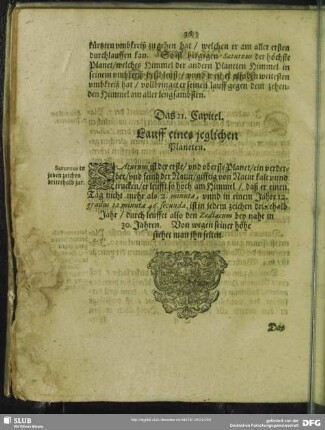 kürtzten vmbkreiß zu gehen hat / welchen er am aller ersten
durchlauffen kan. So ist hergegen Saturnus der höchste
Planet / welches Himmel der andern Planeten Himmel in
seinem vmbkreiß
vmbkreiß hat / vollbringet er seinen lauff gegen dem zehen-
den Himmel am aller langsambsten.
Das 21. Capitel.
Lauff eines jeglichen
Planeten.
Saturnus ist
jeden zeichen
dritthalb jar.
SAturnus ist der erste / vnd oberste Planet / ein verder-
ber / vnd feind der Natur / gifftig von Natur kalt vnnd
trucken / er leufft so hoch am Himmel / daß er einen
Tag nicht mehr als 2. minuta, vnnd in einem Jahre 12.
gradus 12. minuta 46. secunda, ist in jedem zeichen dritthalb
Jahr / durch leuffet also den Zodiacum bey nahe in
30. Jahren. Von wegen seiner höhe
siehet man jhn selten.
Das
SLUB
Wir führen Wissen.
gefördert von der
Deutschen Forschungsgemeinschaft
DFG